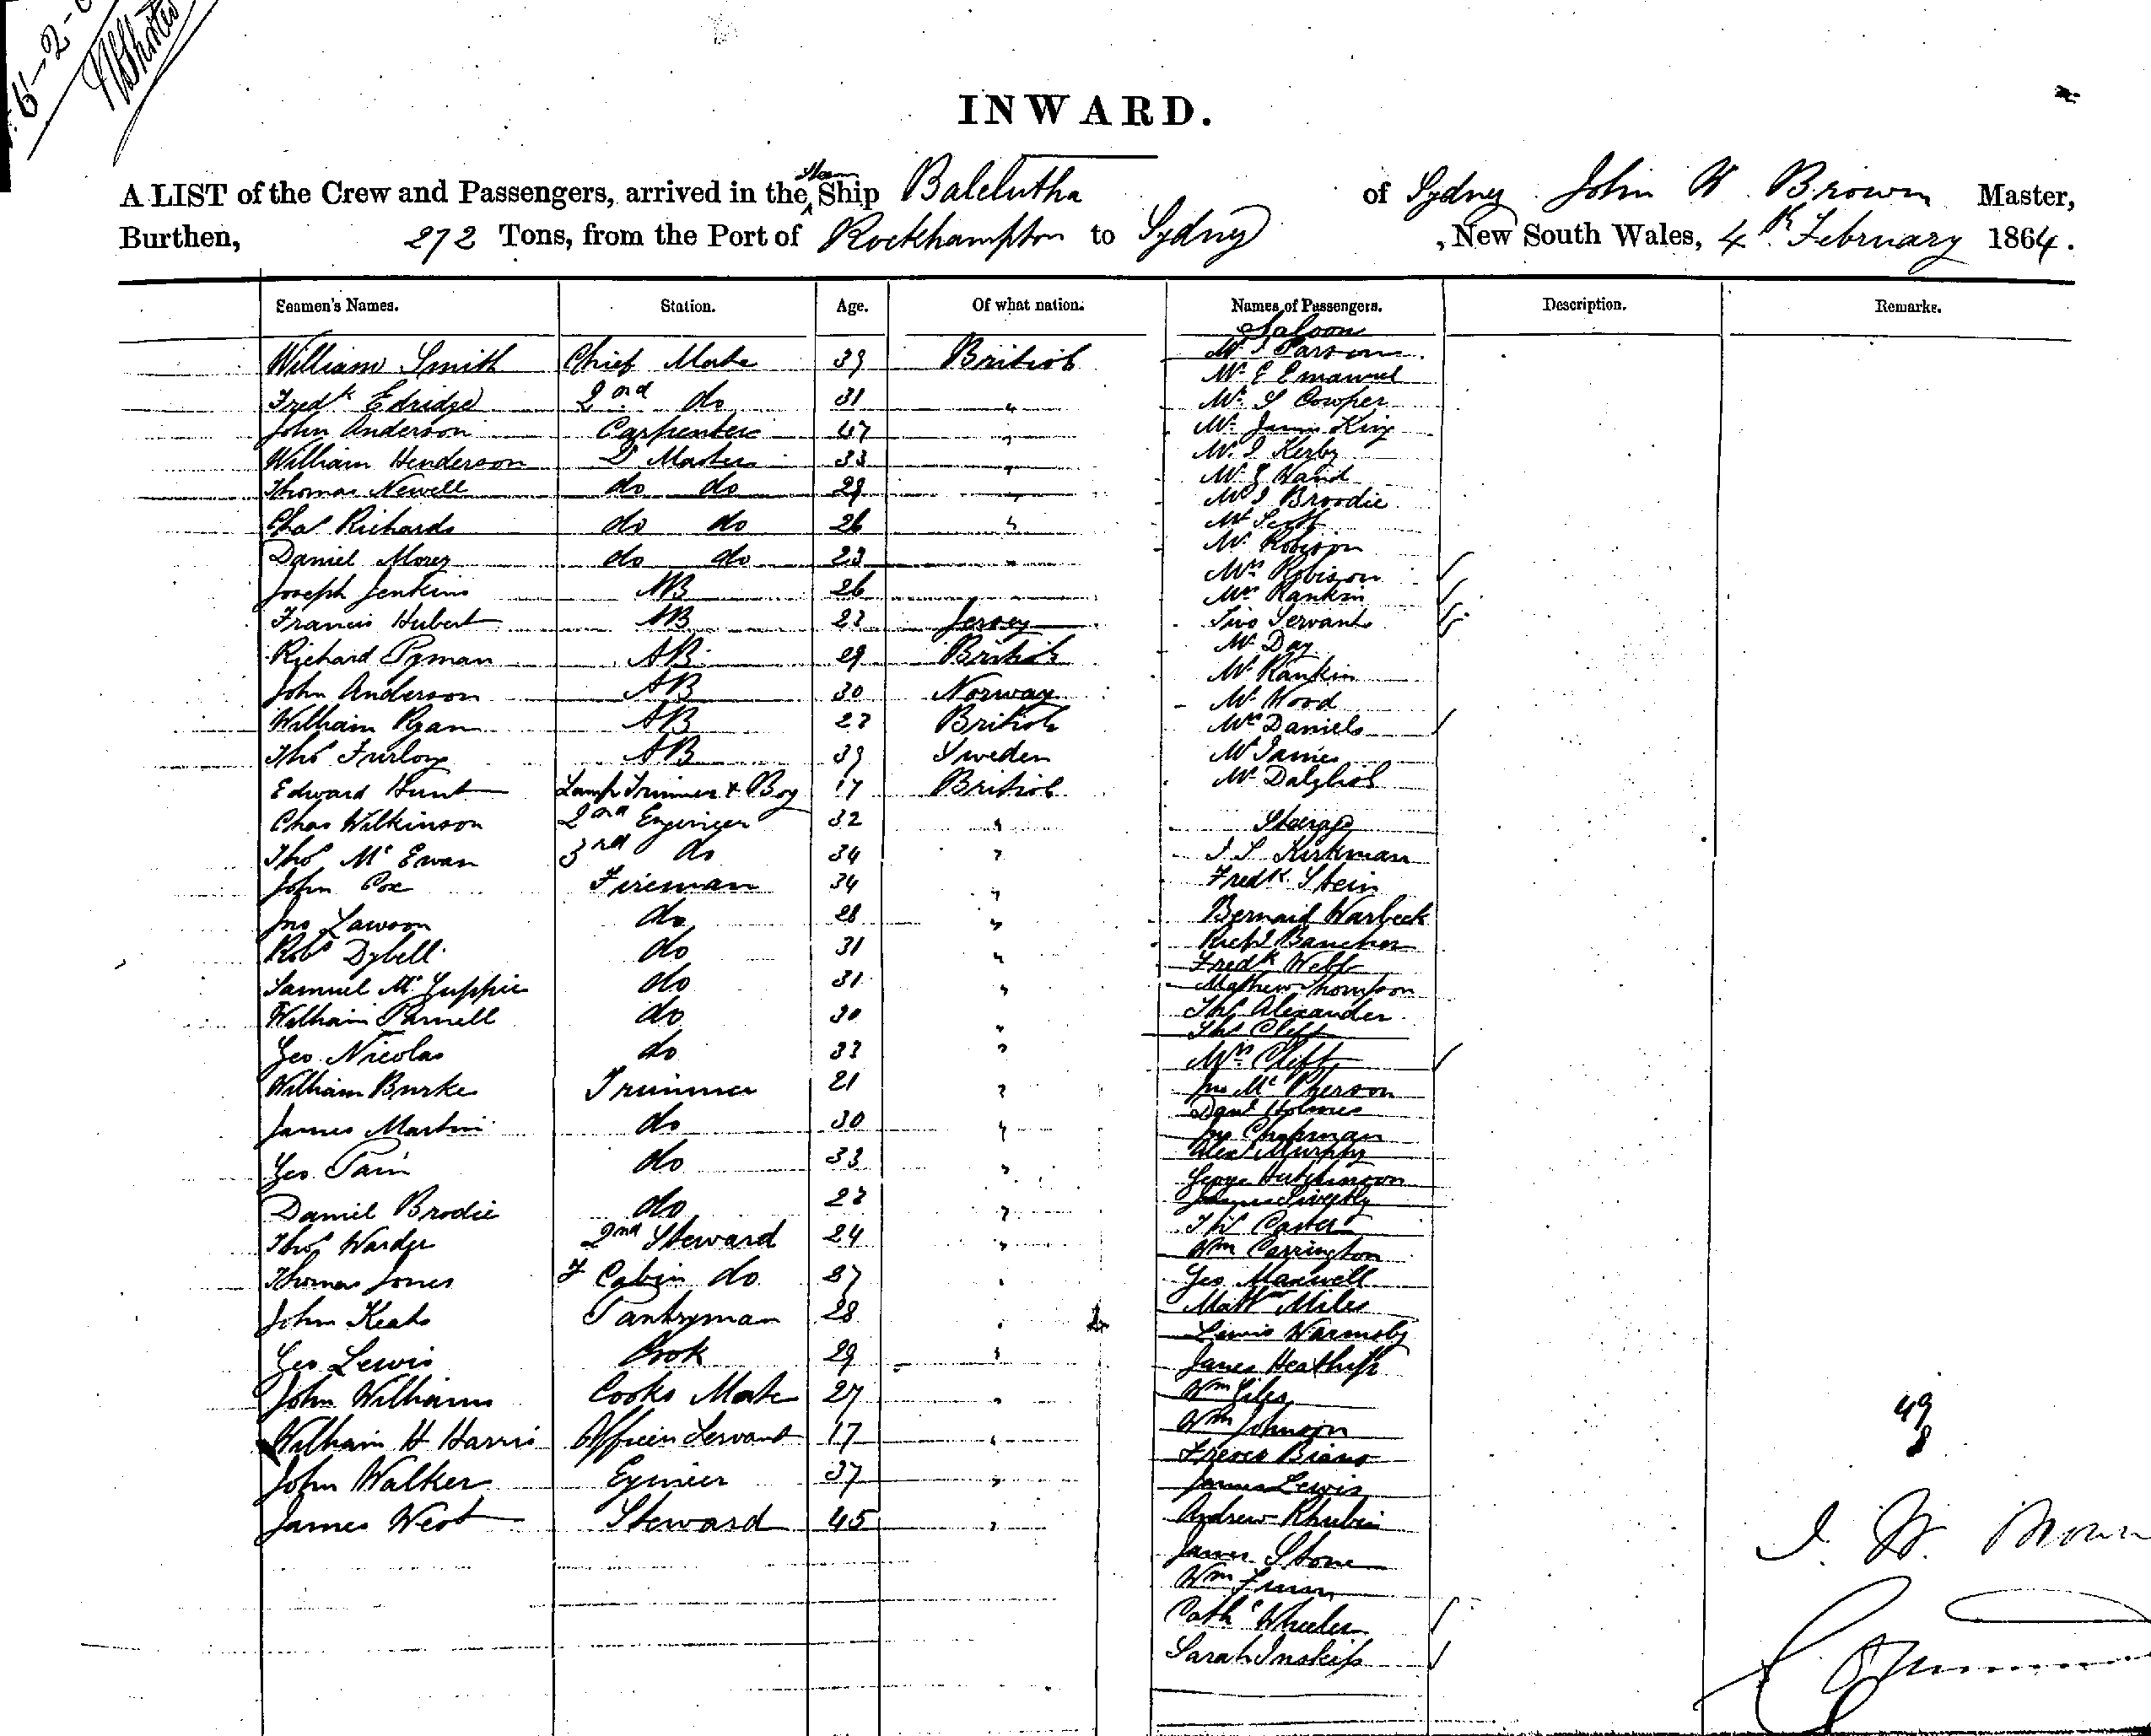 6-2-
INWARD.
A LIST of the Crew and Passengers, arrived in the Steam Ship Balclutha of Sydney John W Brown Master,
Burthen, 272 Tons, from the Port of Rockhampton to Sydney, New South Wales, 4th February 1864.
Seamen's Names. Station. Age. Of what nation. Names of Passengers. Description. Remarks.
Saloon
William Smith Chief Mate 39 British Mr J Parsons
Mr E Emanuel
Fredk Edridge 2nd do 31 " Mr S Cowper
John Anderson Carpenter 47 " Mr James King
William Henderson Q Master 33 " Mr J Kerby
Thomas Newell do do 29 " Mr E Hand
Mr J Broodie
Chas Richards do do 26 " Mr Scott
Mr Robison
Daniel Morey do do 23 " Mrs Robison
Joseph Jenkins AB 26 Mrs Rankin
Francis Hubert AB 22 Jersey Two Servants
Richard Pyman AB 29 British Mr Day
Mr Rankin
John Anderson AB 30 Norway Mr Wood
William Ryan AB 22 British Mrs Daniels
Thos Furlong AB 39 Sweden Mr James
Edward Hunt Lamp Trimmer & Boy 17 British Mr Dalglish
Chas Wilkinson 2nd Engineer 32 " Steerage
Thos McEwan 3rd do 34 " J S Kirkman
John Coe Fireman 34 " Fredk Stein
Jno Lawson do 28 " Bernard Warbeck
Robt Dybell do 31 " Richd
Fredk Webb
Samuel Mc do 31 " Mathew Thompson
William Parnell do 30 " Thos Alexander
Thos Clift
Geo Nicolas do 33 " Mrs Clift
William Burke Trimmer 21 " Jno McPherson
Danl Holmes
James Martin do 30 " Jno Chapman
Alexr Murphy
Geo Pain do 33 " George Hutchinson
James
Daniel Brodie do 22 " Thos Carter
Thos Warder 2nd Steward 24 " Wm Carrington
Thomas Jones F Cabin do 27 " Geo Maxwell
John Keats Pantryman 28 " Mattw Miles
Lewis Warmsby
Geo Lewis Cook 29 " James
John Williams Cooks Mate 27 " Wm Giles
William H Harris Officers Servant 17 " Wm Johnson
49
8
John Walker Engineer 37 " James Lewis
James West Steward 45 " Andrew
James Stone
J. W. Brown
Wm
Cathe Wheeler
Sarah Inskip